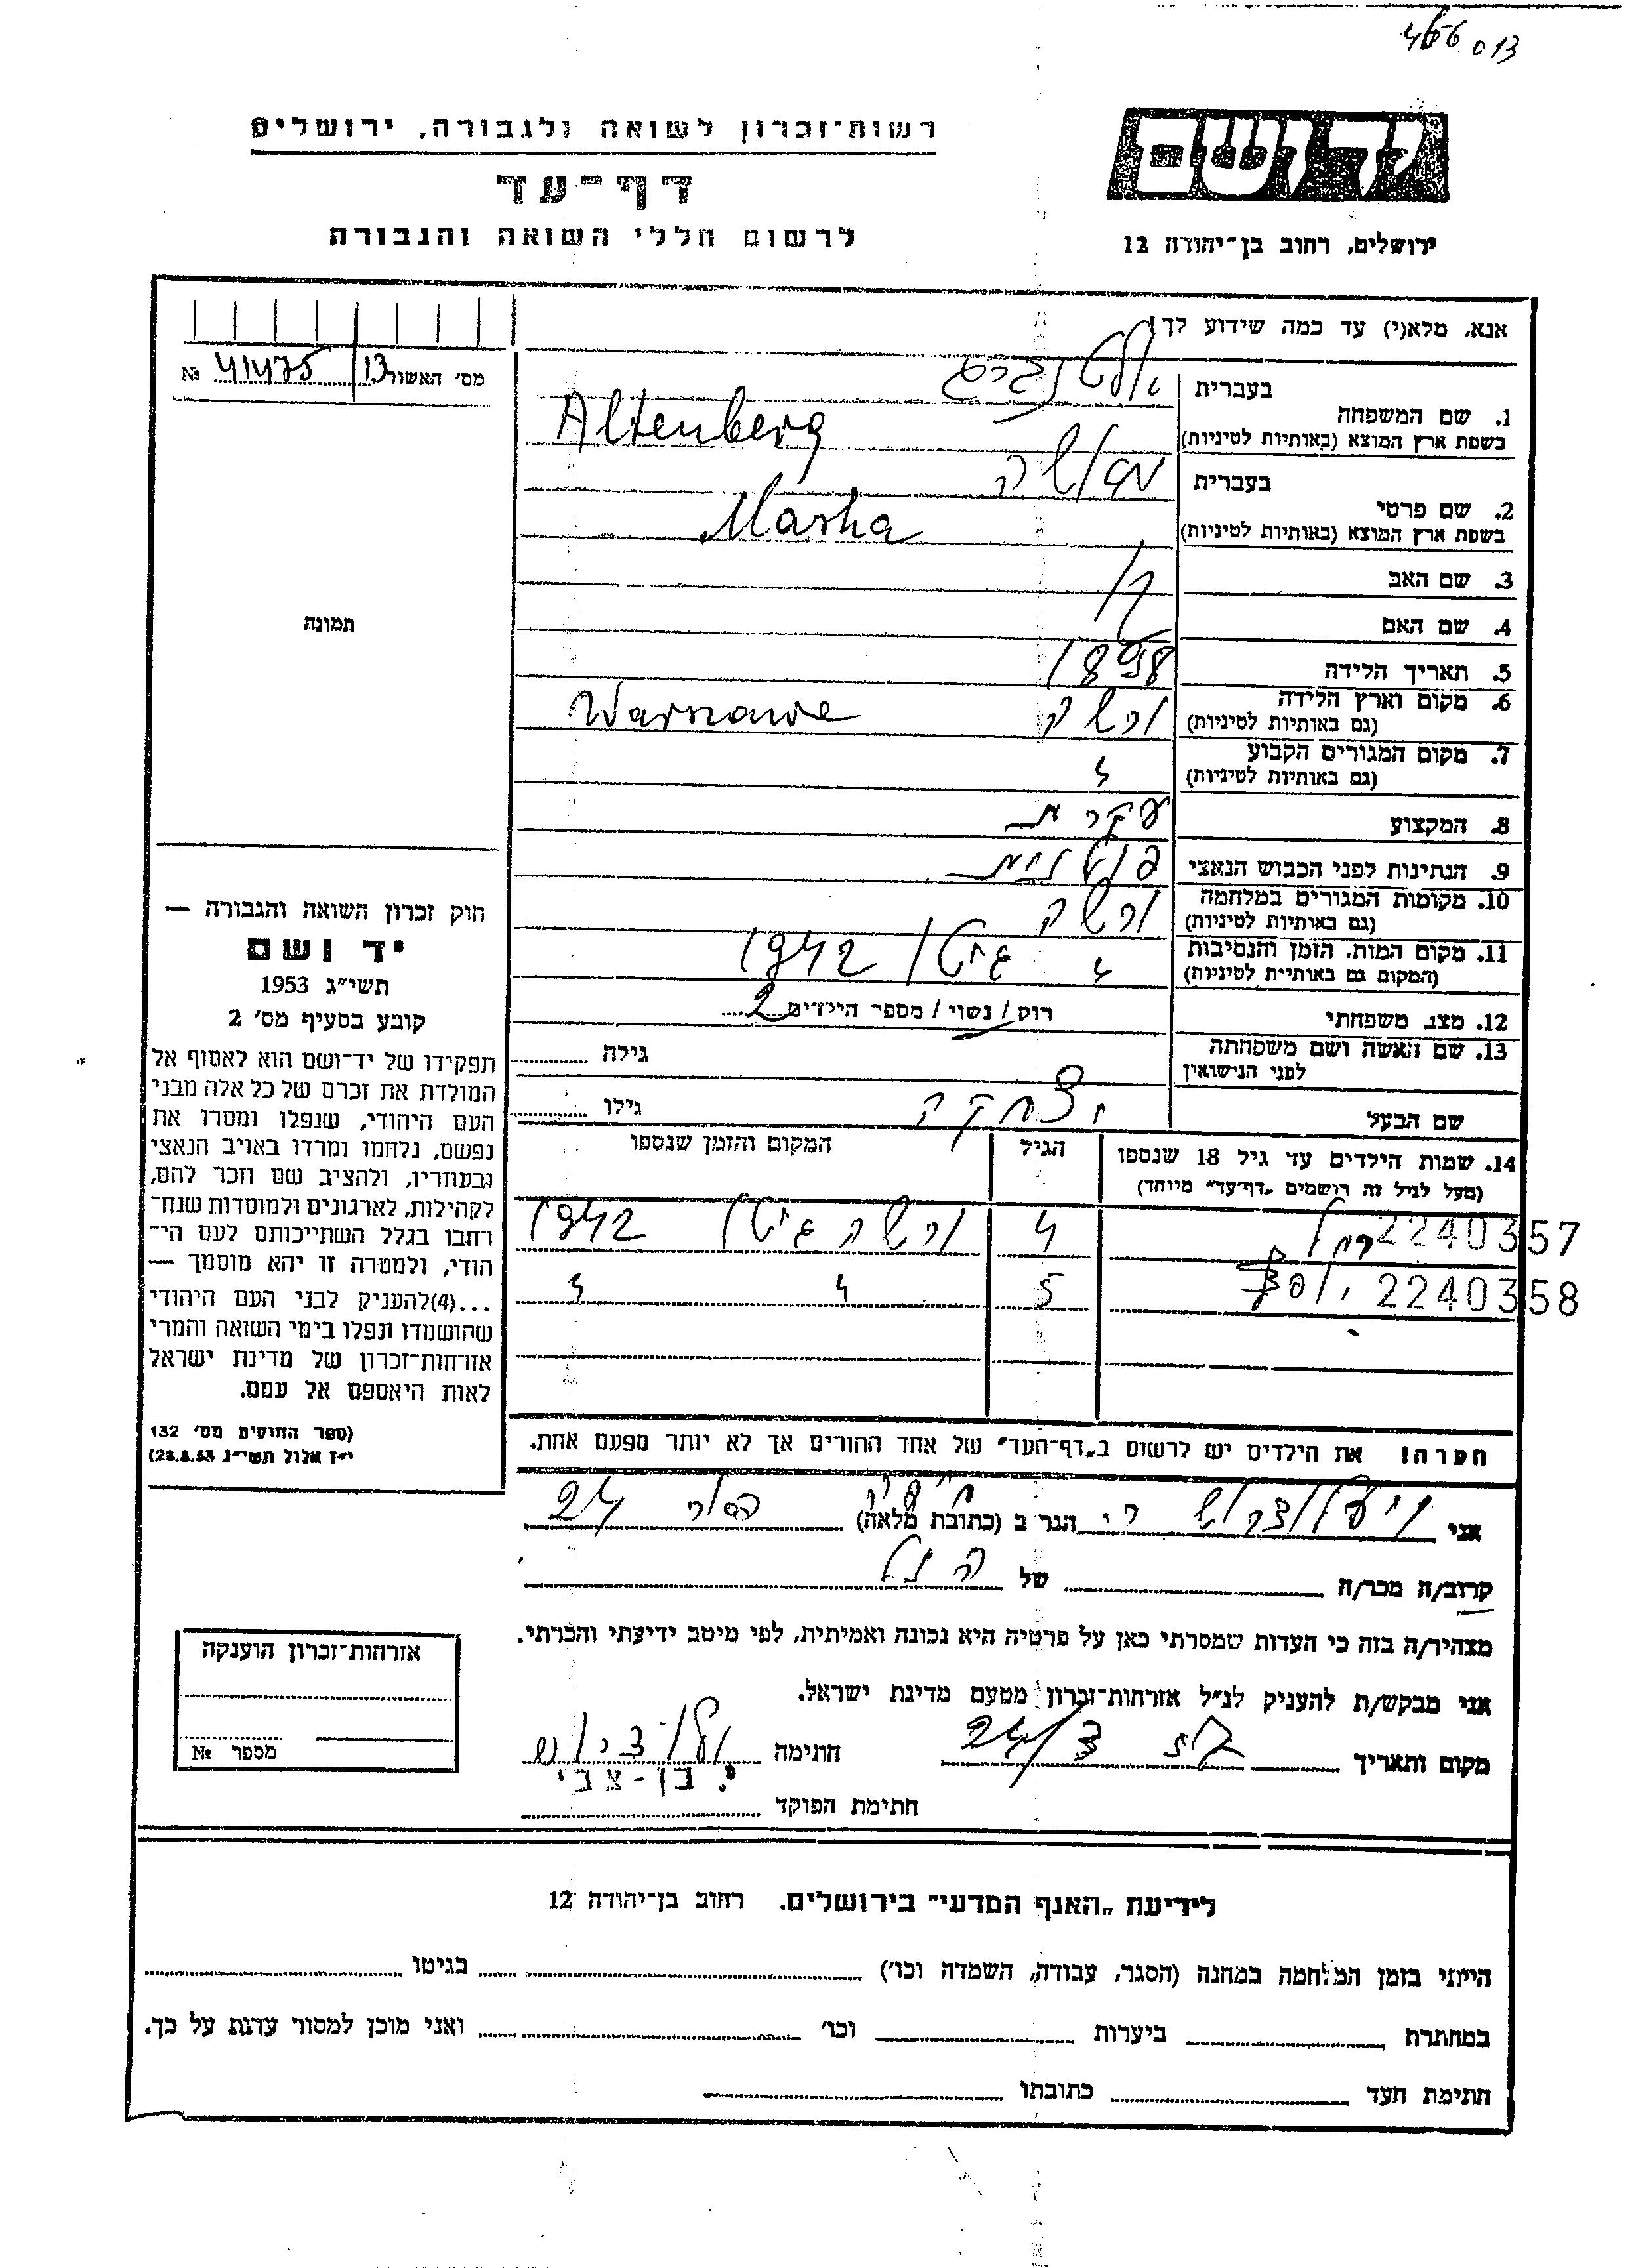 466 013
יד ושם
רשות־זכרון לשואה ולגבורה, ירושלים
דף־עד
לרשום חללי השואה והגבורה
ירושלים, רחוב בן־יהודה 12
אנא, מלא(י) עד כמה שידוע לך!
מס׳ האשור 13 41475 №
1. שם המשפחה
בעברית אלטנברג
בשפת ארץ המוצא (באותיות לטיניות) Altenberg
2. שם פרטי
בעברית מאשה
בשפת ארץ המוצא (באותיות לטיניות) Masha
3. שם האב
4. שם האם
5. תאריך הלידה
6. מקום וארץ הלידה
(גם באותיות לטיניות) ורשה Warszawa
7. מקום המגורים הקבוע
(גם באותיות לטיניות) "
8. המקצוע עקרת
9. הנתינות לפני הכבוש הנאצי פולנית
10. מקומות המגורים במלחמה
(גם באותיות לטיניות) ורשה
11. מקום המות, הזמן והנסיבות
(המקום גם באותיות לטיניות) " גיטו 1942
12. מצב משפחתי רוק / נשוי / מספר הילדים 2
13. שם האשה ושם משפחתה
לפני הנישואין גילה
שם הבעל גילו
14. שמות הילדים עד גיל 18 שנספו
(מעל לגיל זה רושמים „דף־עד״ מיוחד)
הגיל
המקום והזמן שנספו
2240357 רחל 4 ורשה גיטו 1942
2240358 יוסף 5 " "
הערה! את הילדים יש לרשום ב„דף־העד״ של אחד ההורים אך לא יותר מפעם אחת.
תמונה
חוק זכרון השואה והגבורה —
יד ושם
תשי״ג 1953
קובע בסעיף מס׳ 2
תפקידו של יד־ושם הוא לאסוף אל
המולדת את זכרם של כל אלה מבני
העם היהודי, שנפלו ומסרו את
נפשם, נלחמו ומרדו באויב הנאצי
ובעוזריו, ולהציב שם וזכר להם,
לקהילות, לארגונים ולמוסדות שנח־
רבו בגלל השתייכותם לעם הי־
הודי, ולמטרה זו יהא מוסמך —
...(4)להעניק לבני העם היהודי
שהושמדו ונפלו בימי השואה והמרי
אזרחות־זכרון של מדינת ישראל
לאות היאספם אל עמם.
(ספר החוקים מס׳ 132
י״ז אלול תשי״ג 28.8.53)
אני הגר ב (כתובת מלאה) חיפה 24
קרוב/ה מכר/ה של הנ״ל
מצהיר/ה בזה כי העדות שמסרתי כאן על פרטיה היא נכונה ואמיתית, לפי מיטב ידיעתי והכרתי.
אני מבקש/ת להעניק לנ״ל אזרחות־זכרון מטעם מדינת ישראל.
מקום ותאריך 24/3 חתימה
י. בן-צבי
חתימת הפוקד
אזרחות־זכרון הוענקה
מספר №
לידיעת „האנף המדעי״ בירושלים. רחוב בן־יהודה 12
הייתי בזמן המלחמה במחנה (הסגר, עבודה, השמדה וכו׳) בגיטו
במחתרת ביערות וכו׳ ואני מוכן למסור עדות על כך.
חתימת העד כתובתו